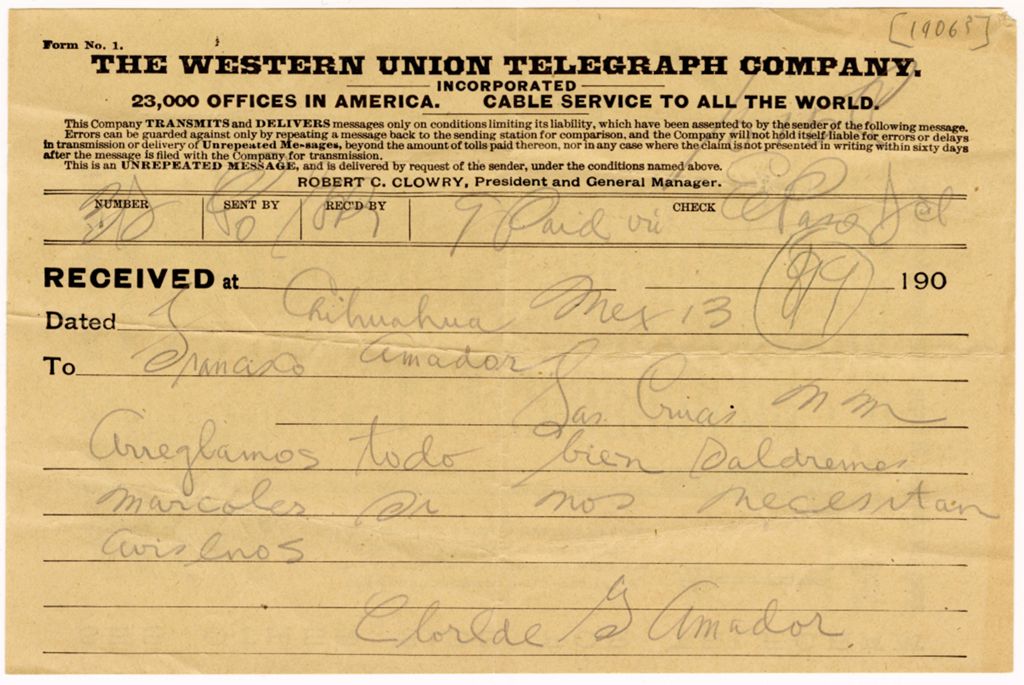 [1906?]
Form No. 1.
THE WESTERN UNION TELEGRAPH COMPANY.
INCORPORATED
23,000 OFFICES IN AMERICA. CABLE SERVICE TO ALL THE WORLD.
This Company TRANSMITS and DELIVERS messages only on conditions limiting its liability, which have been assented to by the sender of the following message.
Errors can be guarded against only by repeating a message back to the sending station for comparison, and the Company will not hold itself liable for errors or delays
in transmission or delivery of Unrepeated Messages, beyond the amount of tolls paid thereon, nor in any case where the claim is not presented in writing within sixty days
after the message is filed with the Company for transmission.
This is an UNREPEATED MESSAGE, and is delivered by request of the sender, under the conditions named above.
ROBERT C. CLOWRY, President and General Manager.
NUMBER SENT BY REC'D BY CHECK
9 Paid via El Paso
RECEIVED at 190
Dated Chihuahua Mex 13
To Francisco Amador
Las Cruces N M
Arreglamos todo bien Saldremos
marcoles si nos necesitan
avisenos
Clorlde G Amador